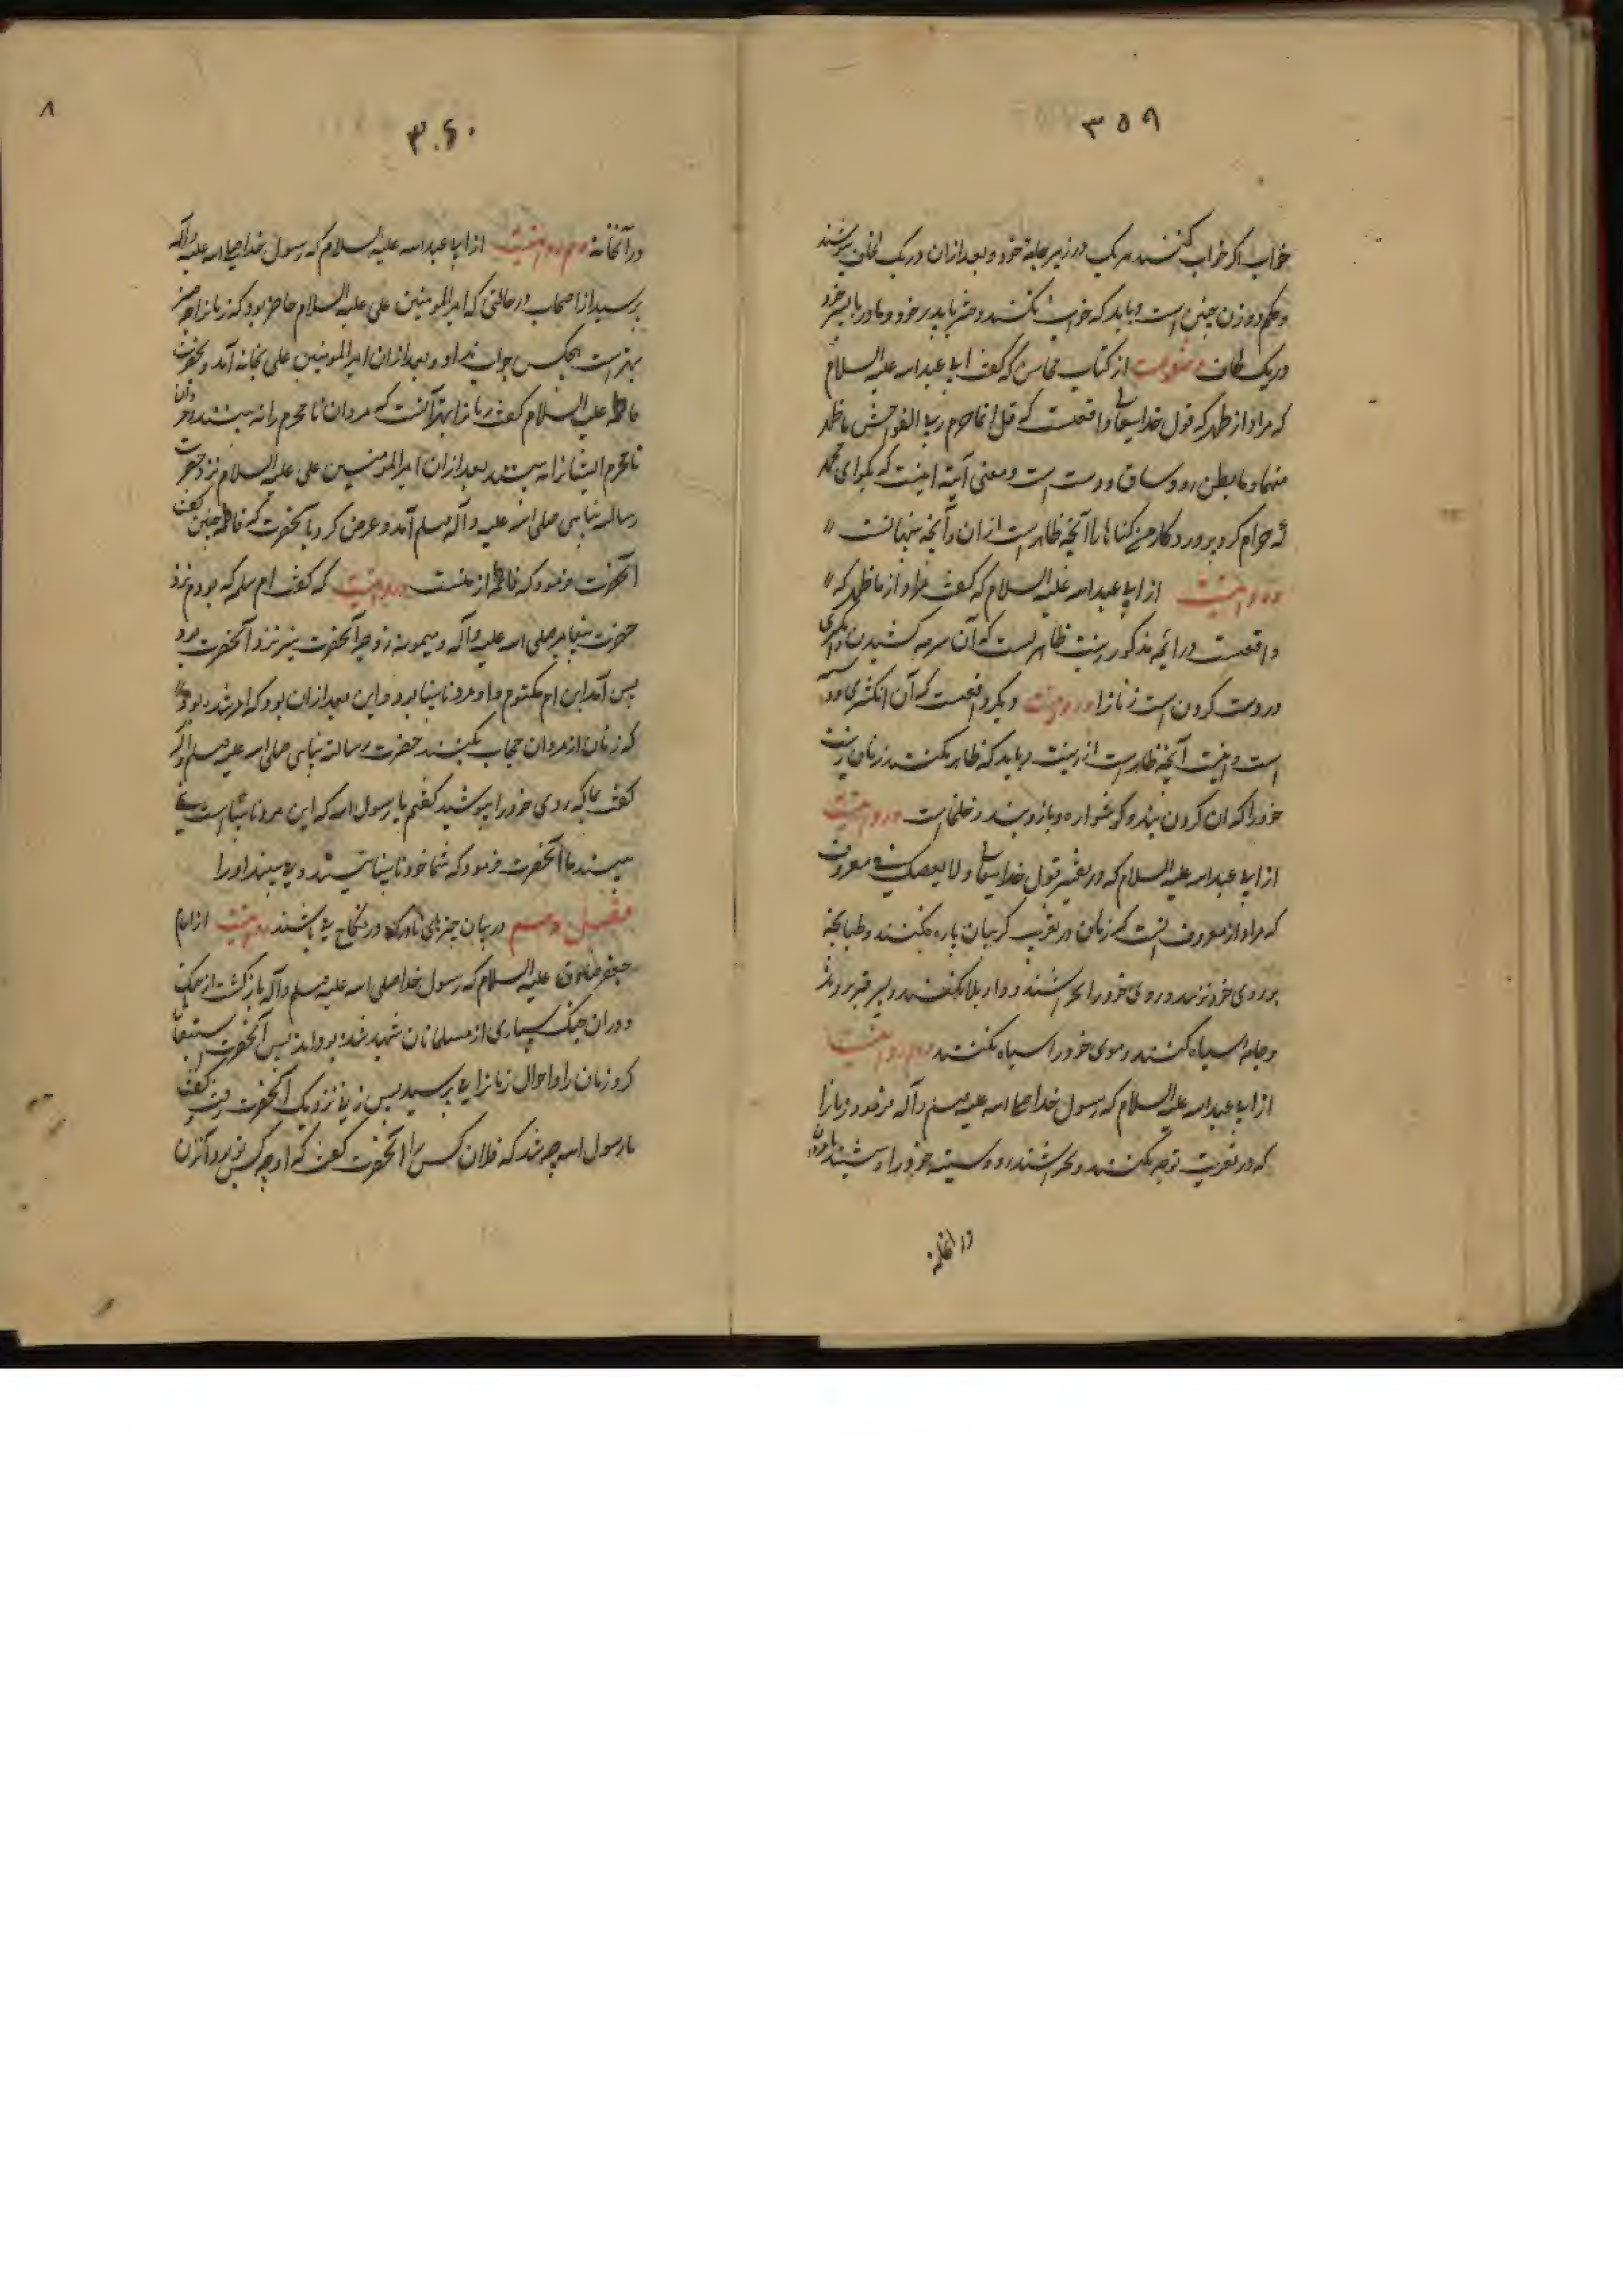 ۳۵۹
خواب اگر خواب کنند هر یک در زیر جامه خود و بعد از آن در یک لحاف پوشند
و حکم دو زن چنین است و باید که خواب نکنند دختر با پدر خود و مادر با پسر خود
در یک لحاف از کتاب محاسن که گفت ابا عبد الله علیه السلام
که مراد از ظهر که قول خدایتعالی واقعست که قل انما حرم ربی الفواحش ما ظهر
منها و ما بطن رو و ساق و دست است و معنی آیه اینست که بگو ای محمد
که حرام کرد پروردگار من گناها را آنچه ظاهر است از ان و آنچه پنهانست
از ابا عبد الله علیه السلام که گفت مراد از ما ظهر که
واقعست در آیه مذکور زینت ظاهر است که آن سرمه کشیدن و انگشتری
در دست کردن است زنانرا دیگر واقعست که آن انگشتری و
است و اینست آنچه ظاهر است از زینت و باید که ظاهر نکنند زنان زینت
خود را که ان گردن بند و گوشواره و بازوبند و خلخالست
از ابا عبد الله علیه السلام که در تفسیر قول خدایتعالی و لا یعصینک فی معروف
که مراد از معروف اینست که زنان در تعزیت گریبان پاره نکنند و طبانچه
بر روی خود نزنند و روی خود را نخراشند و واویلا نکنند و بر سر قبر نروند
و جامه سیاه نکنند و موی خود را سیاه نکنند
از ابا عبد الله علیه السلام که رسول خدا صلی الله علیه و سلم و آله فرمود زنانرا
که در تعزیت نوحه نکنند و نخراشند رو و سینه خود را و ننشینند با مردان
در انخانه
۸
۳۶۰
در آنخانه از ابا عبد الله علیه السلام که رسول خدا صلی الله علیه و آله
پرسید از اصحاب در حالتی که امیر المومنین علی علیه السلام حاضر بود که زنانرا چه چیز
بهتر است هیچکس جواب نداد و بعد از ان امیر المومنین علی بخانه آمد و حضرت
فاطمه علیه السلام گفت زنانرا بهتر آنست که مردان نامحرم را نه بینند و مردان
نامحرم ایشانرا نه بینند بعد از ان امیر المومنین علی علیه السلام نزد حضرت
رسالت پناهی صلی الله علیه و آله و سلم آمد و عرض کرد با آنحضرت که فاطمه چنین گفت
آنحضرت فرمود که فاطمه از منست که گفت ام سلمه که بودم نزد
حضرت پیغامبر صلی الله علیه و آله و میمونه زوجه آنحضرت نیز نزد آنحضرت بود
پس آمد ابن ام مکتوم و او مرد نابینا بود و این بعد از ان بود که امر شده بود
که زنان از مردان حجاب بکنند حضرت رسالت پناهی صلی الله علیه و سلم و آله
گفت بما که روی خود را بپوشید گفتم یا رسول الله که این مرد نابیناست نمی
بیند ما را آنحضرت فرمود که شما خود نابینا نیستید و می بینید او را
فصل دهم در بیان چیزهای نادر که در نکاح می باشند از امام
جعفر صادق علیه السلام که رسول خدا صلی الله علیه و سلم و آله بازگشت از جنگ
و در ان جنگ بسیاری از مسلمانان شهید شده بودند پس آنحضرت استقبال
کرد زنان را و احوال زنانرا می پرسید پس زنی نزدیک آنحضرت رفت و گفت
یا رسول الله چه شد که فلان کس را آنحضرت گفت که او چه کس تو بود آنزن